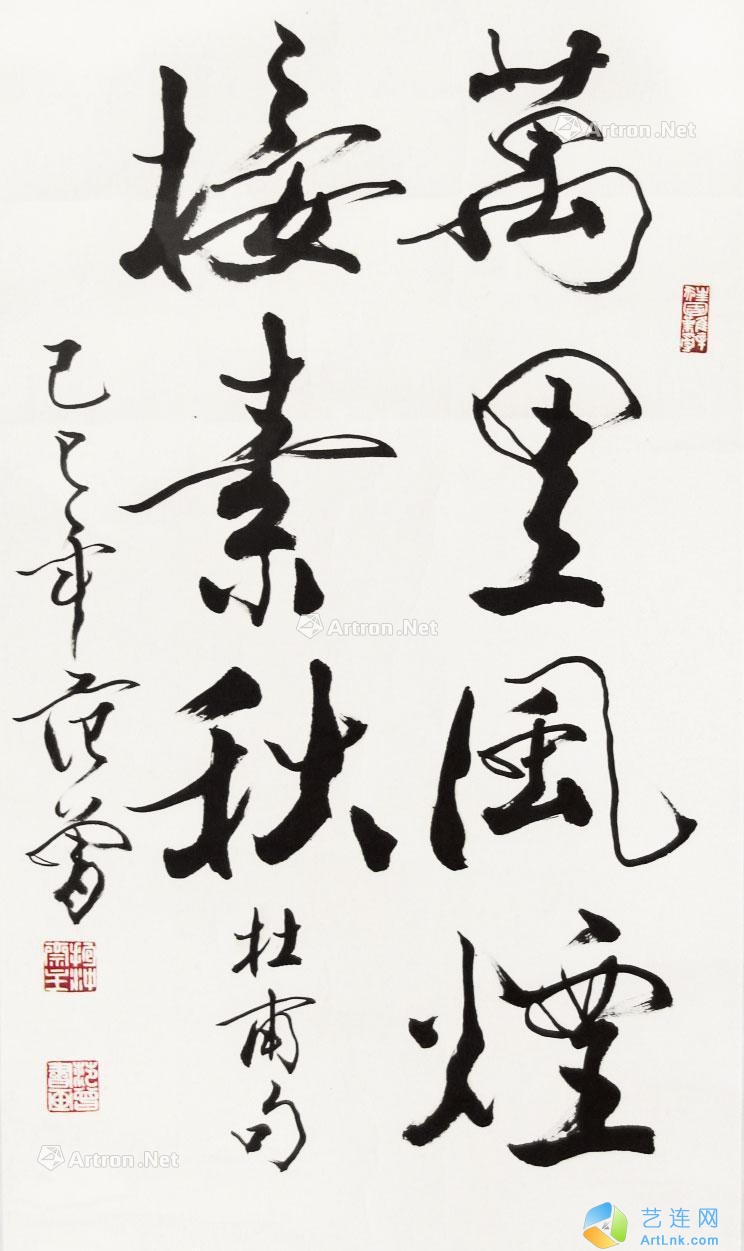 萬里風煙
接素秋
杜甫句
己巳年范曾
Artron.Net
Artron.Net
Artron.Net
艺连网
ArtLnk.com